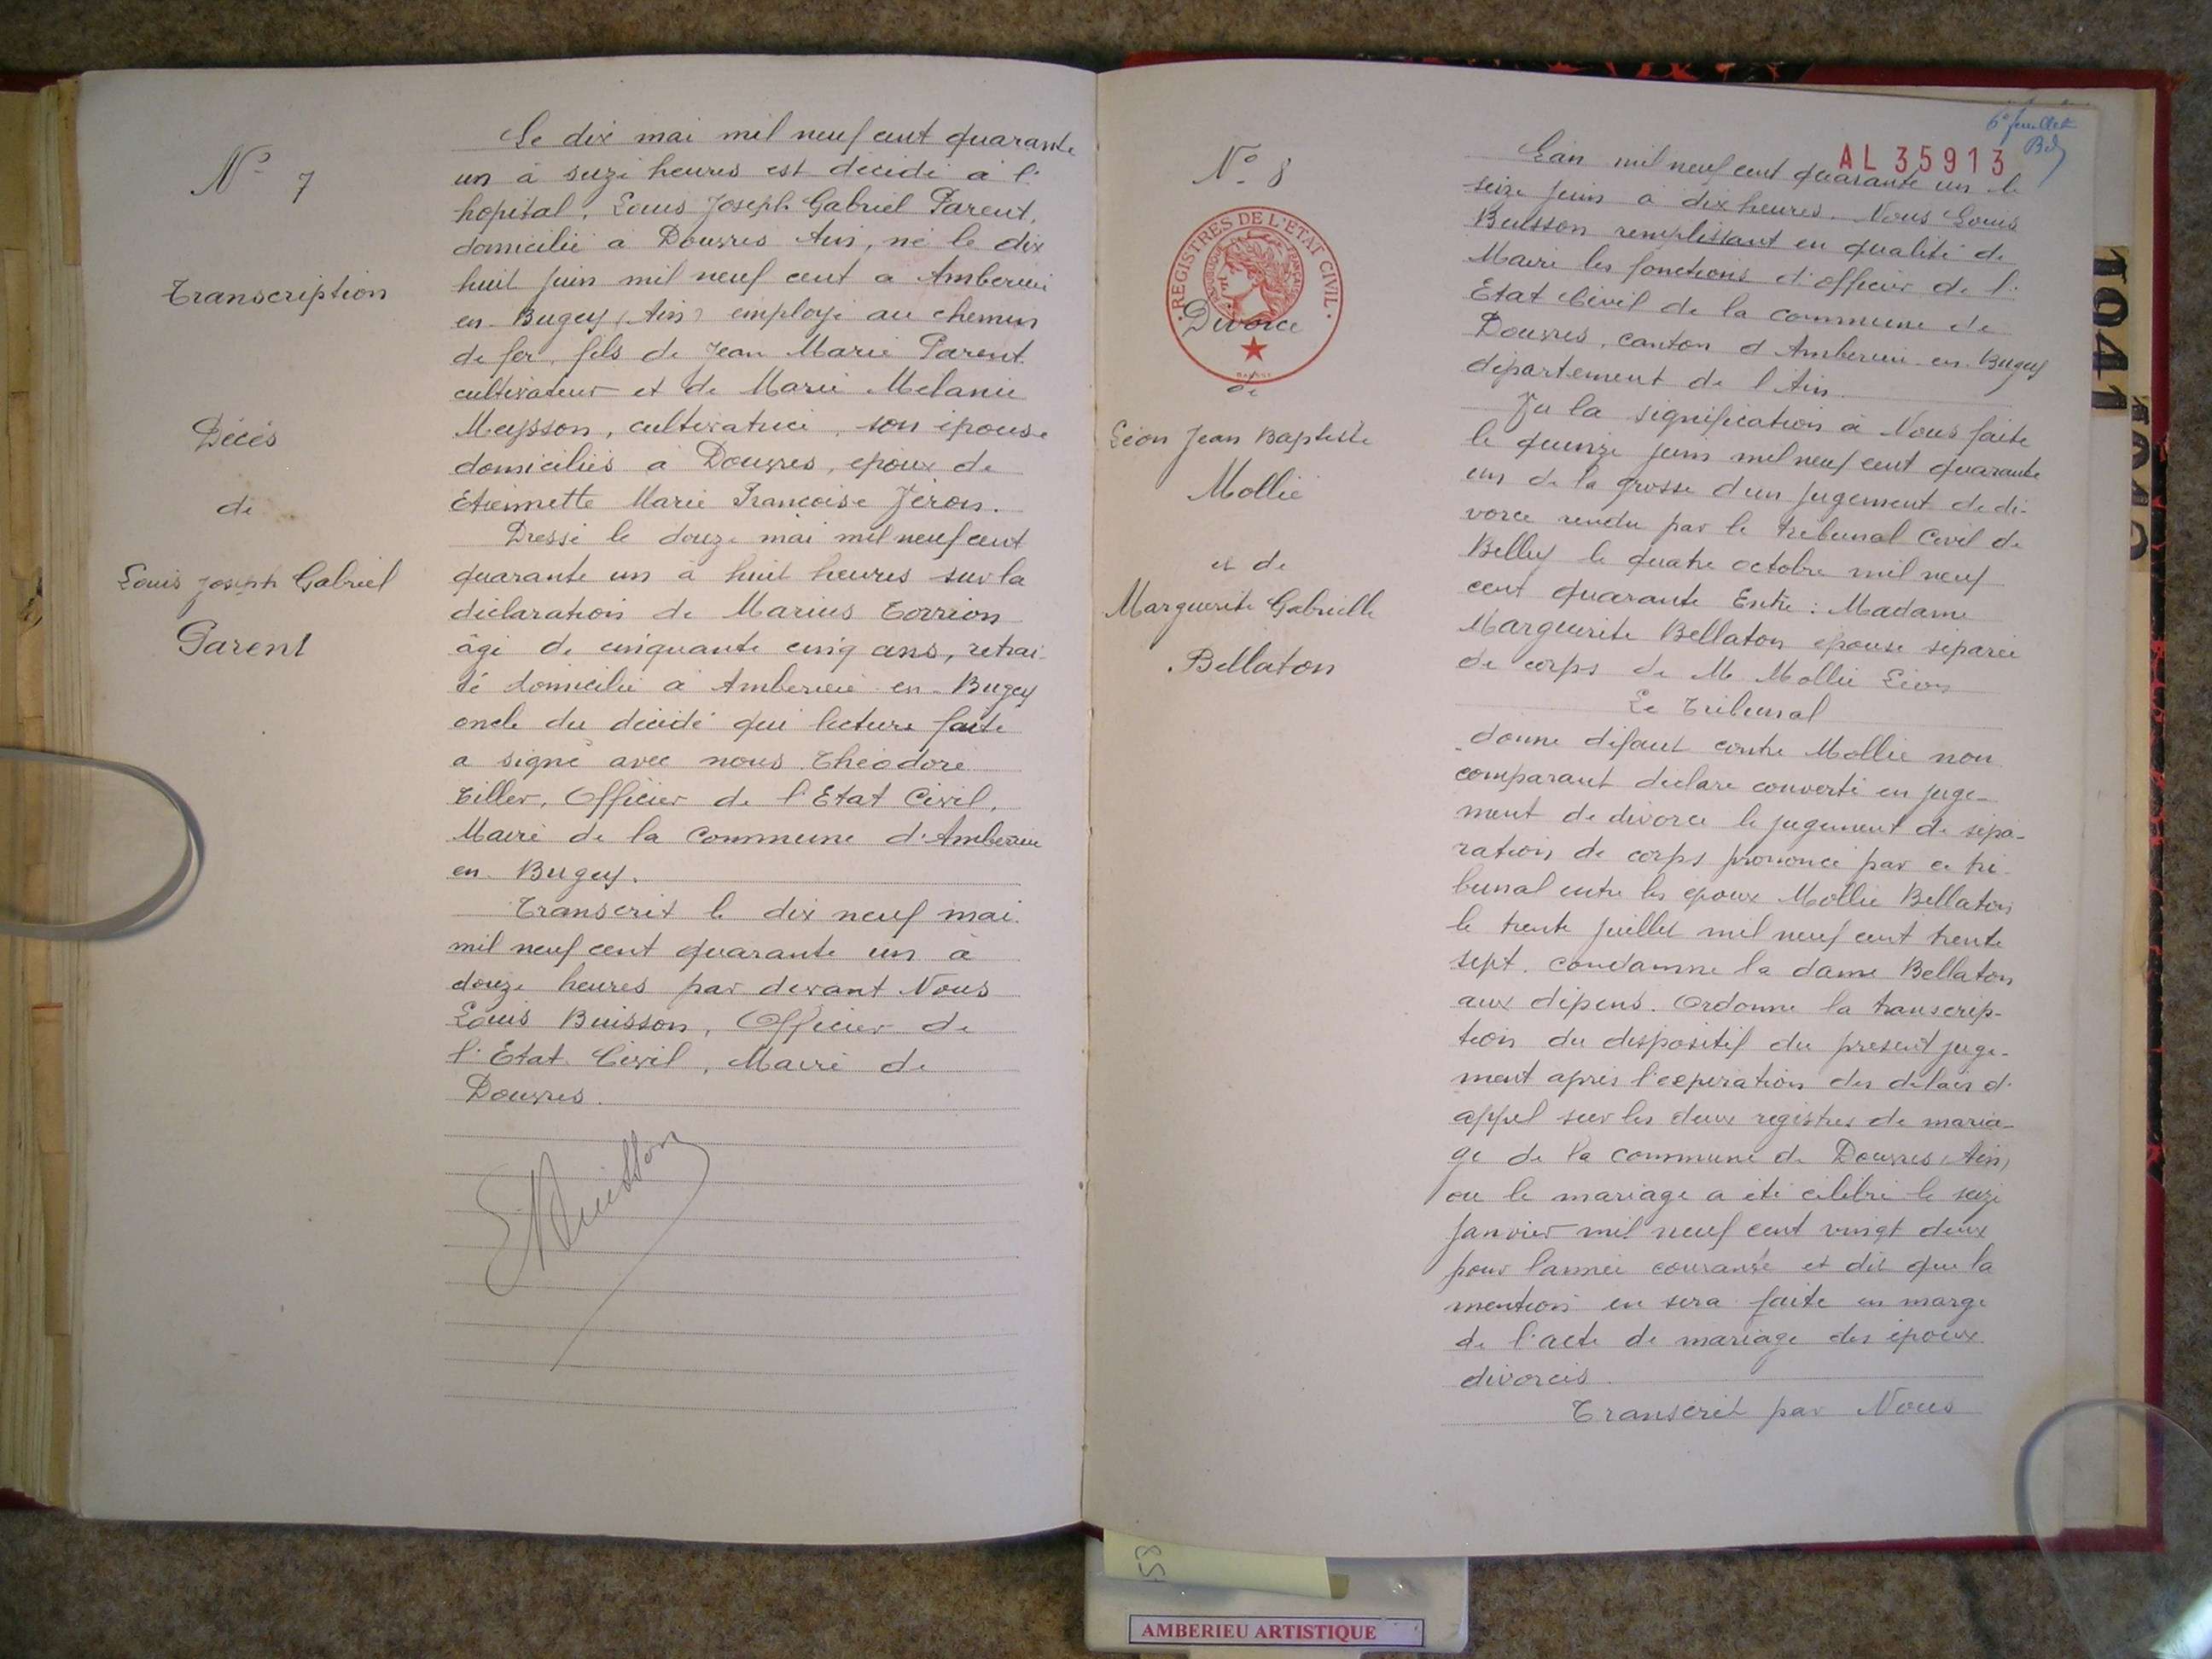 N° 7
Transcription
Décès
de
Louis Joseph Gabriel
Parent
Le dix mai mil neuf cent quarante
un à seize heures est décédé à l'
hopital, Louis Joseph Gabriel Parent,
domicilié à Douvres Ain, né le dix
huit juin mil neuf cent a Amberieu
en Bugey (Ain) employé au chemin
de fer, fils de Jean Marie Parent
cultivateur et de Marie Mélanie
Meysson, cultivatrice, son épouse
domiciliés à Douvres, époux de
Etiennette Marie Francoise Jéron.
Dressé le douze mai mil neuf cent
quarante un à huit heures sur la
déclaration de Marius Torrion
âgé de cinquante cinq ans, retrai-
té domicilié à Amberieu en-Bugey
oncle du décédé qui lecture faite
a signé avec nous Théodore
Tiller, Officier de l'Etat Civil,
Maire de la Commune d'Amberieu
en Bugey.
Transcrit le dix neuf mai
mil neuf cent quarante un à
douze heures par devant Nous
Louis Buisson, Officier de
l'Etat Civil, Maire de
Douvres.
Buisson
6e feuillet
AL 35913
N° 8
REGISTRES DE L'ETAT CIVIL
REPUBLIQUE FRANÇAISE
Divorce
de
Léon Jean Baptiste
Mollie
et de
Marguerite Gabrielle
Bellaton
L'an mil neuf cent quarante un le
seize juin à dix heures. Nous Louis
Buisson remplissant en qualité de
Maire les fonctions d'officier de l'
Etat Civil de la commune de
Douvres, canton d'Amberieu-en-Bugey
département de l'Ain.
Vu la signification à Nous faite
le quinze juin mil neuf cent quarante
un de la grosse d'un jugement de di-
vorce rendu par le tribunal Civil de
Belley le quatre octobre mil neuf
cent quarante Entre : Madame
Marguerite Bellaton épouse séparée
de corps de M Mollie Léon
Le Tribunal
donne défaut contre Mollie non
comparant déclare converti en juge-
ment de divorce le jugement de sépa-
ration de corps prononcé par ce tri-
bunal entre les époux Mollie Bellaton
le trente juillet mil neuf cent trente
sept. condamne la dame Bellaton
aux dépens. Ordonne la transcrip-
tion du dispositif du présent juge-
ment après l'expiration des délais d'
appel sur les deux registres de maria-
ge de la commune de Douvres (Ain)
ou le mariage a été célébré le seize
Janvier mil neuf cent vingt deux
pour l'année courante et dit que la
mention en sera faite en marge
de l'acte de mariage des époux
divorcés.
Transcrit par Nous
1941
58
AMBERIEU ARTISTIQUE